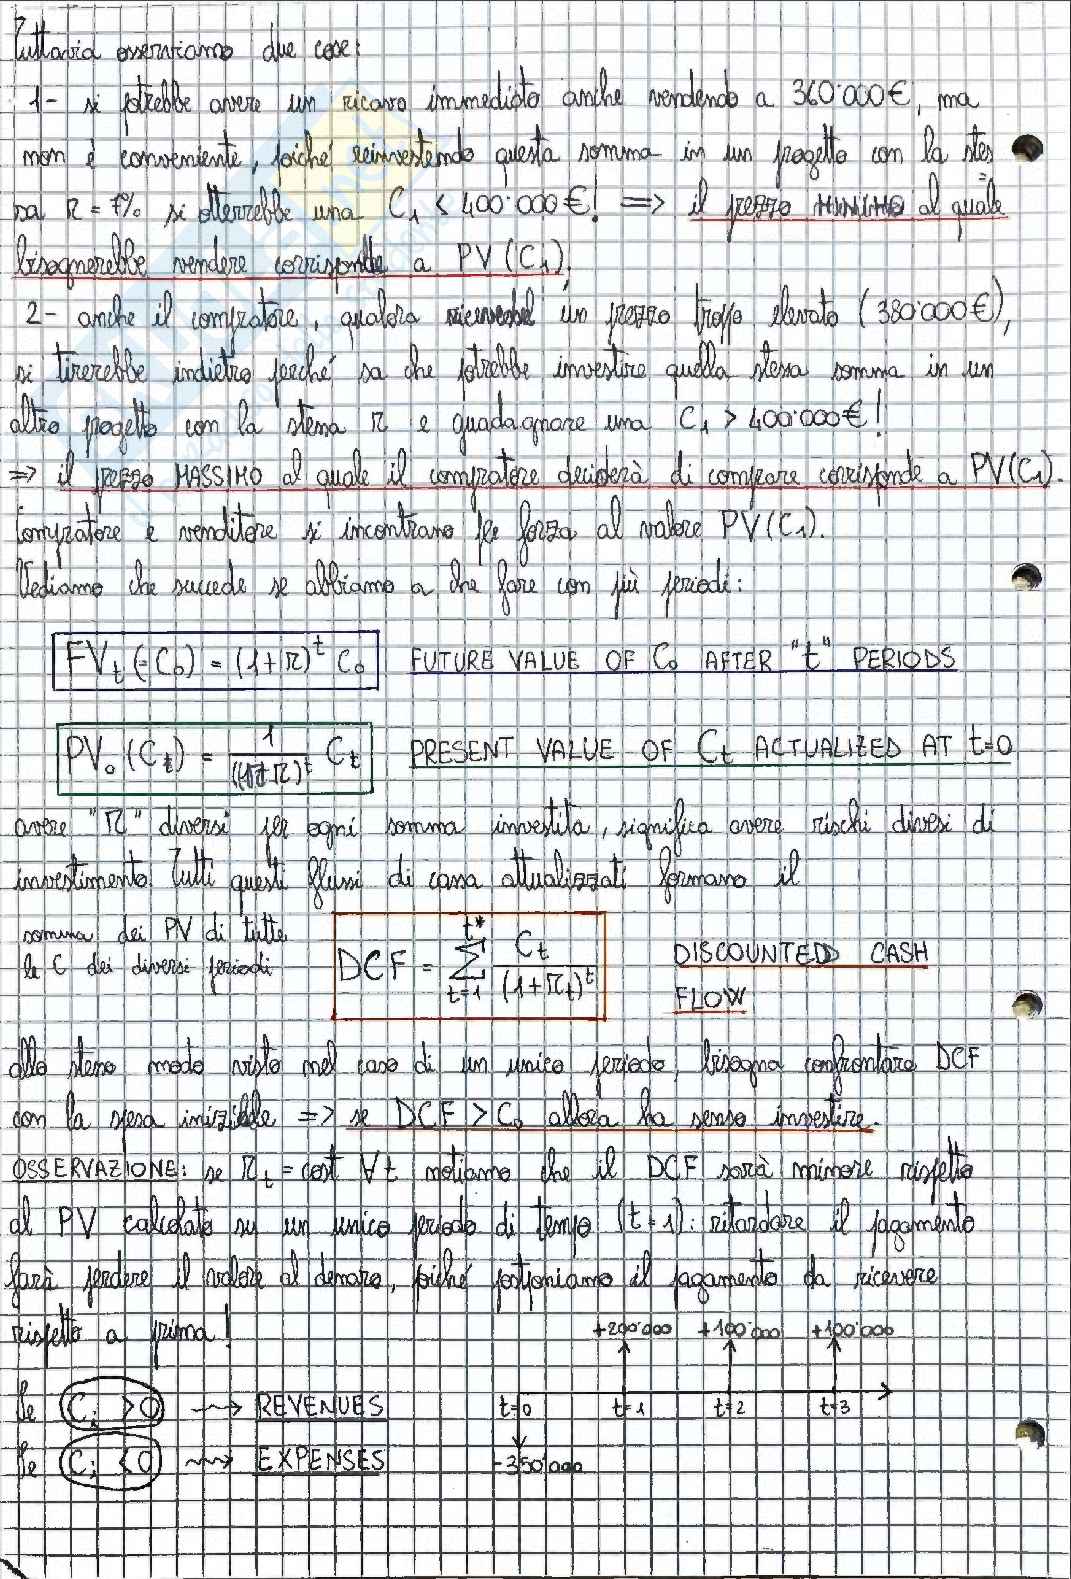 Tuttavia osserviamo due cose:
1- si potrebbe avere un ricavo immediato anche vendendo a 360'000€, ma
non è conveniente, poiché reinvestendo questa somma in un progetto con la stes
sa r = 7% si otterrebbe una C₁ < 400'000€! => il prezzo MINIMO al quale
bisognerebbe vendere corrisponde a PV(C₁).
2- anche il compratore, qualora ricevesse un prezzo troppo elevato (380'000€),
si tirerebbe indietro perché sa che potrebbe investire quella stessa somma in un
altro progetto con la stessa r e guadagnare una C₁ > 400'000€!
=> il prezzo MASSIMO al quale il compratore deciderà di comprare corrisponde a PV(C₁).
Compratore e venditore si incontrano per forza al valore PV(C₁).
Vediamo che succede se abbiamo a che fare con più periodi:
FVt (=C₀) = (1+r)^t C₀ FUTURE VALUE OF C₀ AFTER "t" PERIODS
PV₀(Ct) = 1/(1+r)^t Ct PRESENT VALUE OF Ct ACTUALIZED AT t=0
avere "r" diversi per ogni somma investita, significa avere rischi diversi di
investimento. Tutti questi flussi di cassa attualizzati formano il
somma dei PV di tutte
le C dei diversi periodi
DCF = Σ t=1 t* Ct/(1+rt)^t
DISCOUNTED CASH
FLOW
allo stesso modo visto nel caso di un unico periodo, bisogna confrontare DCF
con la spesa iniziale => se DCF > C₀ allora ha senso investire.
OSSERVAZIONE: se rt = cost ∀t notiamo che il DCF sarà minore rispetto
al PV calcolato su un unico periodo di tempo (t=1): ritardare il pagamento
farà perdere il valore al denaro, poiché postponiamo il pagamento da ricevere
rispetto a prima!
+200'000 +100'000 +100'000
Se Ci >0 ⇝ REVENUES
t=0 t=1 t=2 t=3
Se Ci <0 ⇝ EXPENSES
-350'000